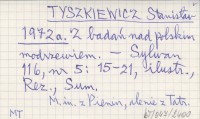 TYSZKIEWICZ Stanisław
1972a. Z badań nad polskim
modrzewiem. — Sylwan
116, nr 5: 15-21, ilustr.,
Rez., Sum.
M. in. z Pienin, ale nie z Tatr.
MT